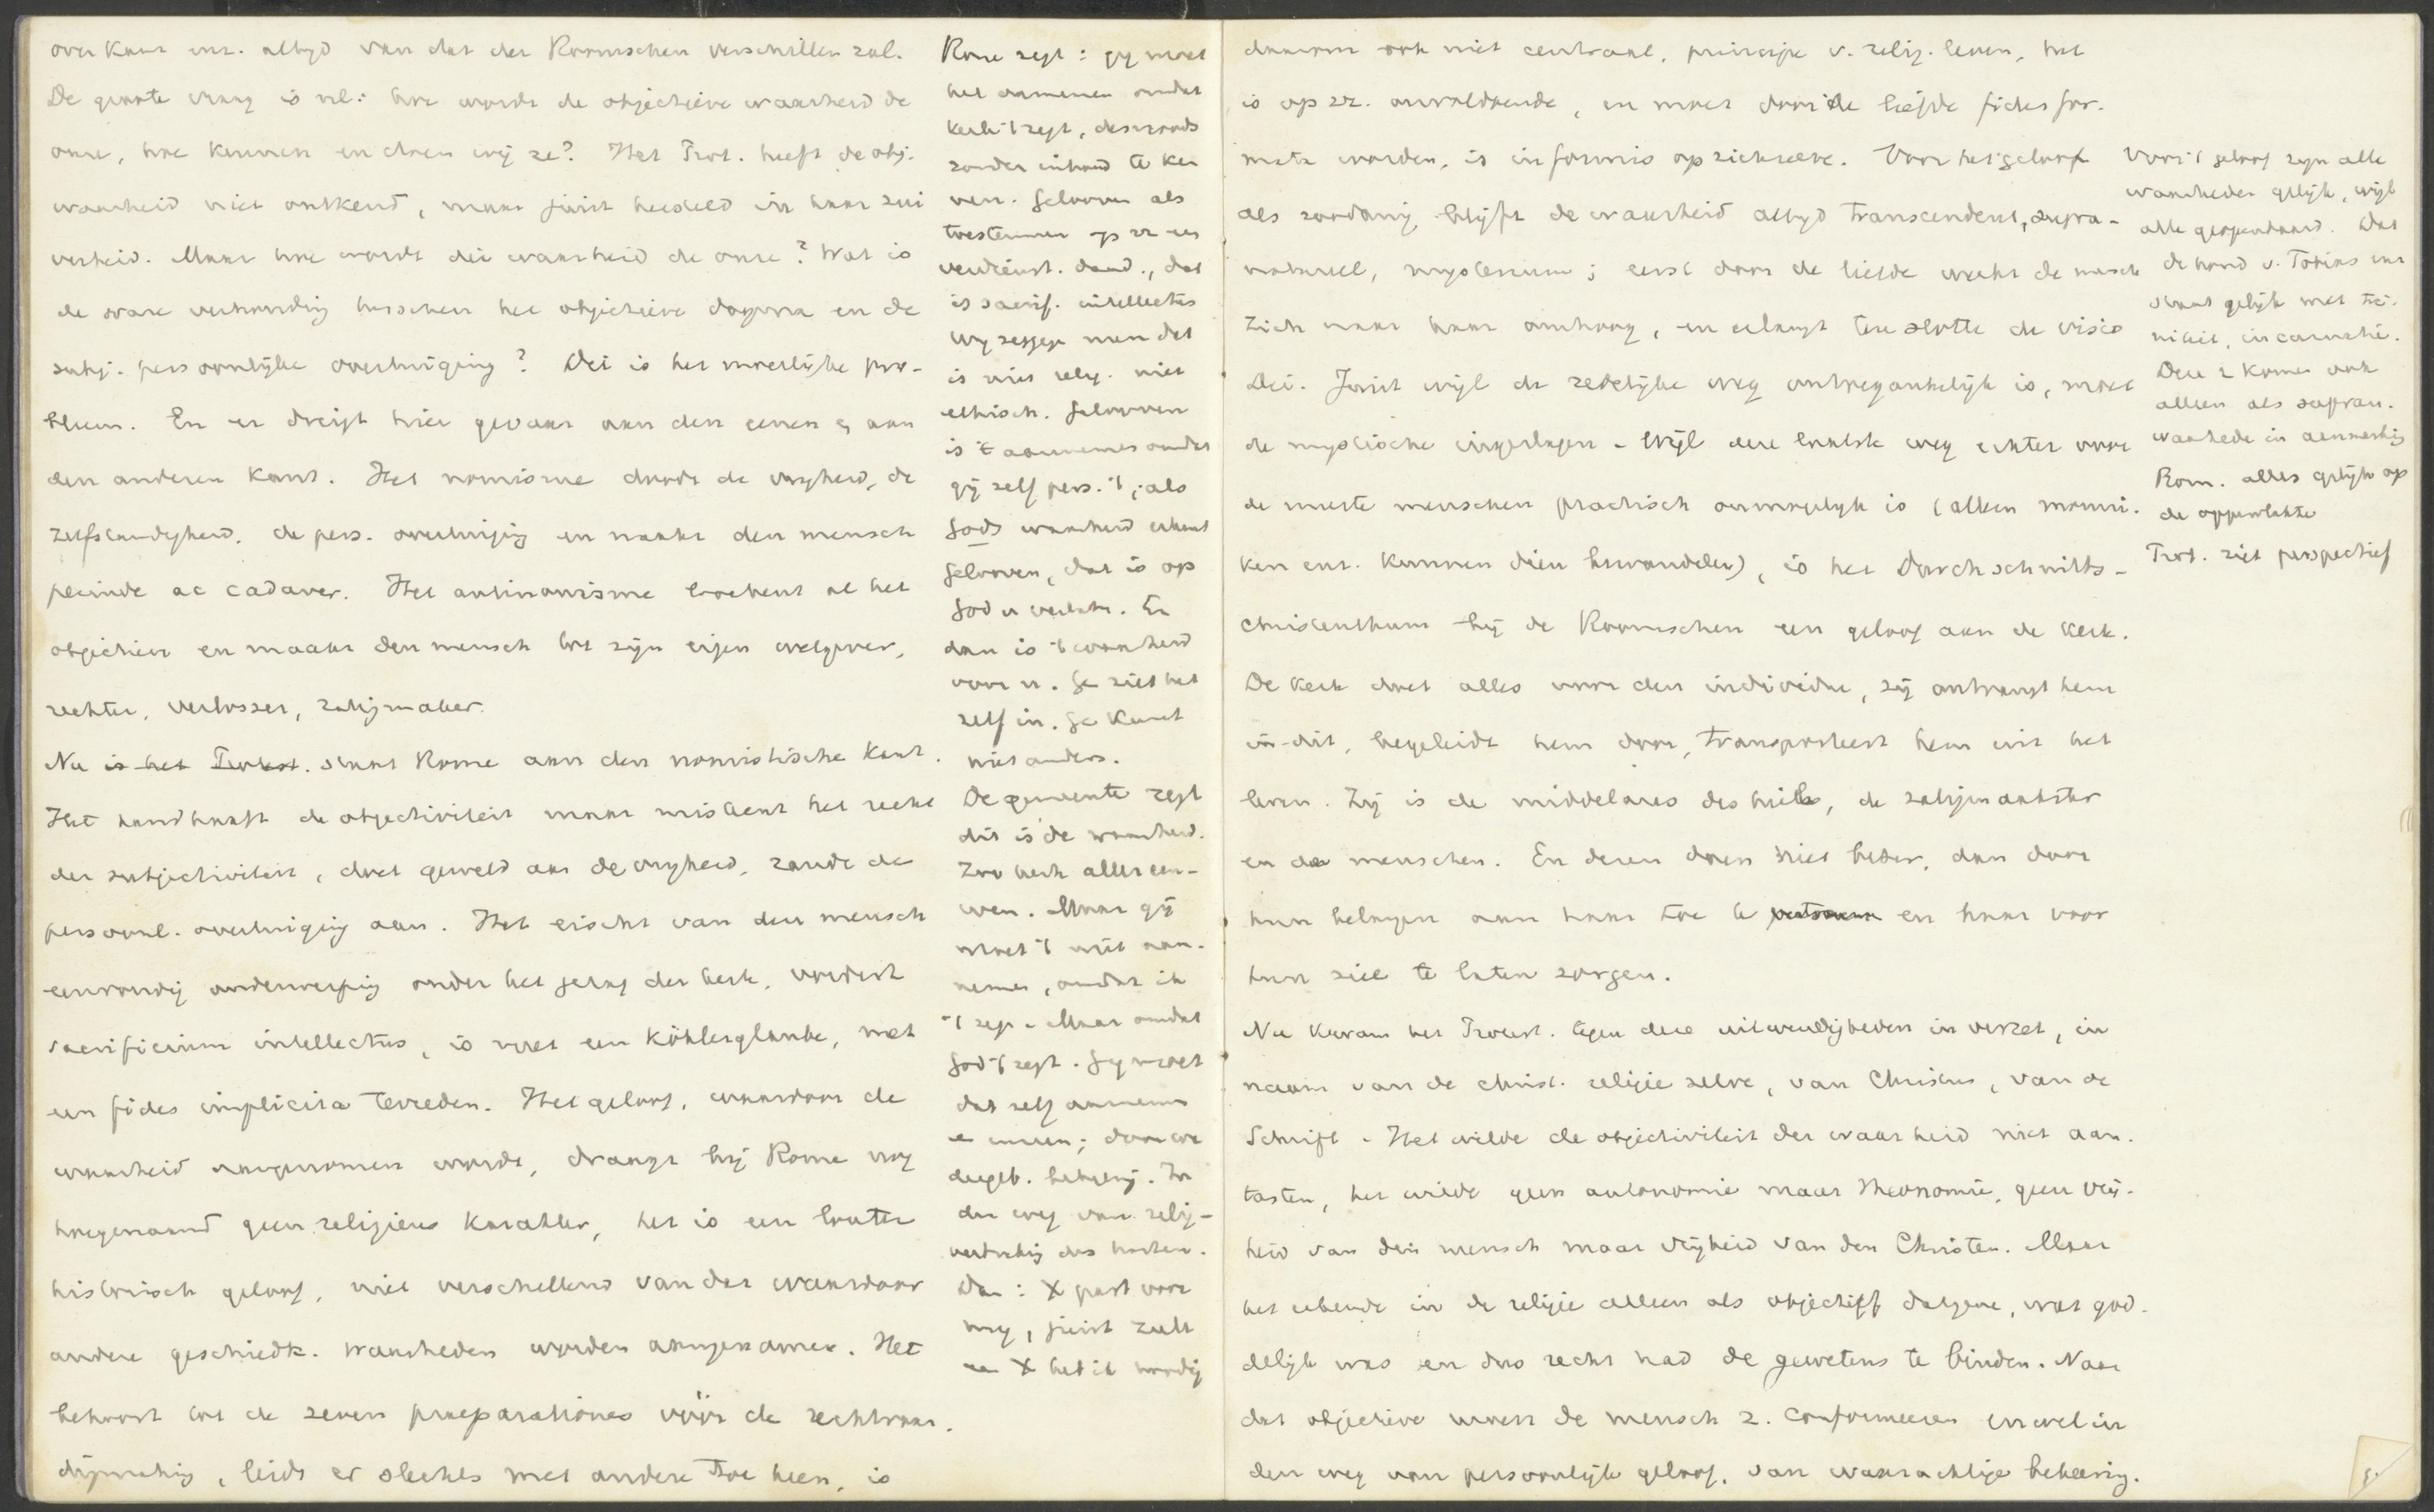 over kans enz. altyd van dat der Roomschen verschillen zal.
De groote vraag is nl: hoe wordt de objectieve waarheid de
onze, hoe kennen en doen wij ze? Het Prot. heeft de obj.
waarheid niet ontkend, maar juist hersteld in haar zui
verheid. Maar hoe wordt die waarheid de onze? Wat is
de ware verhouding tusschen het objectieve dogma en de
subj. persoonlijke overtuiging? Dit is het moeilijke pro-
bleem. En er dreigt hier gevaar aan den eenen en aan
den anderen kant. Het nomisme doodt de vryheid, de
zelfstandigheid, de pers. overtuiging en maakt den mensch
perinde ac cadaver. Het antinomisme loochent al het
objectieve en maakt den mensch tot zijn eigen wetgever,
rechter, verlosser, zaligmaker.
Nu is het Protest. staat Rome aan den nomistische kant.
Het handhaaft de objectiviteit maar miskent het recht
der subjectiviteit, doet geweld aan de vryheid, randt de
persoonl. overtuiging aan. Het eischt van den mensch
eenvoudig onderwerping onder het gezag der kerk, vordert
sacrificium intellectus, is met een Köhlerglaube, met
een fides implicita tevreden. Het geloof, waardoor de
waarheid aangenomen wordt, draagt bij Rome nog
hoegenaamd geen religieus karakter, het is een louter
historisch geloof, niet verschillend van dat waardoor
andere geschiedk. waarheden worden aangenomen. Het
behoort tot de zeven praeparationes vóór de rechtvaar.
digmaking, leidt er slechts met andere toe heen, is
Rome zegt: gy moet
het aannemen omdat
kerk 't zegt, desnoods
zonder inhoud te ken
nen. Gelooven als
toestemmen op zz een
verdienst. daad., dat
is sacrif. intellectus
Wy zeggen neen dat
is niet relig. niet
ethisch. Gelooven
is 't aannemen omdat
gij zelf pers. 't als
Gods waarheid erkent
Gelooven, dat is op
God u verlaten. En
dan is 't waarheid
voor u. Ge ziet het
zelf in. Ge kunt
niet anders.
De gemeente zegt
dit is de waarheid.
Zoo kerk aller eeu-
wen. Maar gij
moet 't niet aan-
nemen, omdat ik
't zeg. Maar omdat
God 't zegt. Gy moet
dat zelf aannemen
door uw
dagel. bekeering. In
den weg van relig-
des harten.
Dan: X past voor
my, juist zulk
een X heb ik noodig
daarom ook niet centraal, principe v. relig. leven, het
is op zz. onvoldoende, en moet door de liefde fides for.
mata worden, is informis op zichzelve. Voor het geloof
als zoodanig blijft de waarheid altyd transcendent, supra-
natureel, mysterium; eerst door de liefde werkt de mensch
zich naar haar omhoog, en erlangt ten slotte de visio
Dei. Juist wijl de redelijke weg ontoegankelijk is, moet
de mystische ingeslagen. Wijl deze laatste weg echter voor
de meeste menschen practisch onmogelyk is (alleen monni.
ken enz. kunnen dien bewandelen), is het Durchschnitts-
christenthum bij de Roomschen een geloof aan de kerk.
De kerk doet alles voor den individu, zij ontvangt hem
in dit, begeleidt hem door, transporteert hem uit het
leven. Zij is de middelares des heils, de zaligmaakster
en der menschen. En dezen doen niet beter, dan door
hun belangen aan haar toe te vertrouwen en haar voor
hun ziel te laten zorgen.
Nu kwam het Protest. tegen deze uitwendigheden in verzet, in
naam van de christ. religie zelve, van Christus, van de
Schrift. Het wilde de objectiviteit der waarheid niet aan.
tasten, het wilde geen autonomie maar theonomie, geen vrij-
heid van den mensch maar vrijheid van den Christen. Maar
het erkende in de religie alleen als objectief datgene, wat god.
delijk was en dus recht had de gewetens te binden. Naar
dat objectieve moest de mensch z. conformeeren en wel in
den weg van persoonlijk geloof, van waarachtige bekeering.
Voor 't geloof zyn alle
waarheden gelijk, wijl
alle geopenbaard. Dat
de hond v. Tobias enz
staat gelijk met tri-
niteit, incarnatie.
Deze 2 komen ook
alleen als supran.
waarhede in aanmerking
Rom. alles gelijk op
de oppervlakte
Prot. ziet perspectief